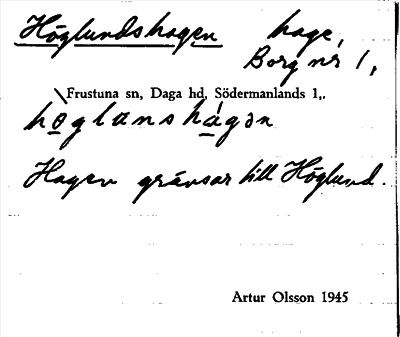 Höglundshagen hage,
Borg nr 1,
Frustuna sn, Daga hd, Södermanlands l.
hòglanshágən
Hagen gränsar till Höglund.
Artur Olsson 1945